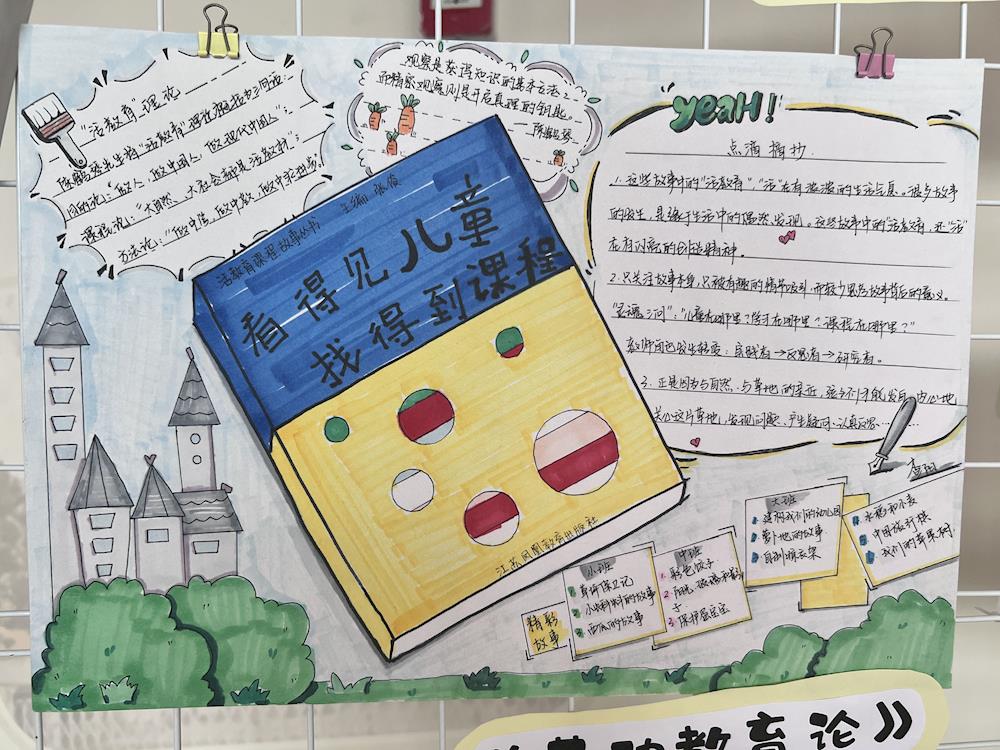 "活教育"理论
陈鹤琴先生将"活教育"理论概括为三句话:
目的论:"做人,做中国人,做现代中国人";
课程论:"大自然、大社会都是活教材";
方法论:"做中学,做中教,做中求进步。"
观察是获得知识的基本方法之一
而精密观察则是开启真理的钥匙。
陈鹤琴
活教育课程故事丛书
主编 张俊
看得见儿童
找得到课程
江苏凤凰教育出版社
yeaH!
点滴摘抄
1. 这些故事中的"活教育","活"在有滋滋的生活气息。很多故事
的发生,是缘于生活中的偶然发现。这些故事中的"活教育",还"活"
在有讨论的创造精神。
2. 只关注故事本身,只被有趣的情节吸引,而较少思考故事背后的意义。
"灵魂三问":"儿童在哪里?学习在哪里?课程在哪里?"
教师间已发生转变:实践者→反思者→研究者。
3. 正是因为与自然、与草地的亲近,孩子们才能发自内心地
关心这片草地,发现问题、产生疑问、认真思
精彩
故事
小班
1 草莓保卫记
2 小蝌蚪的故事
3 西瓜的故事
中班
1. 彩色饺子
2.
3 保护蚕宝宝
大班
1 建构我们的幼儿园
2 萝卜地的故事
3 自制晾衣架
中国旅行棋
我们的苹果树
教育论》